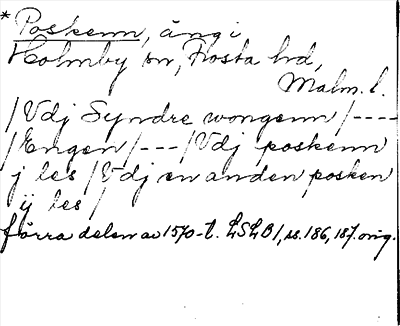 * Poskenn, äng i
Holmby sn, Frosta hd,
Malm. l.
/Vdj Syndre wongenn/----
/Engen/---/Vdj poskenn
j les/Vdj en anden posken
ij les/
förra delen av 1570-t. LSLB1, ss. 186, 187. orig.